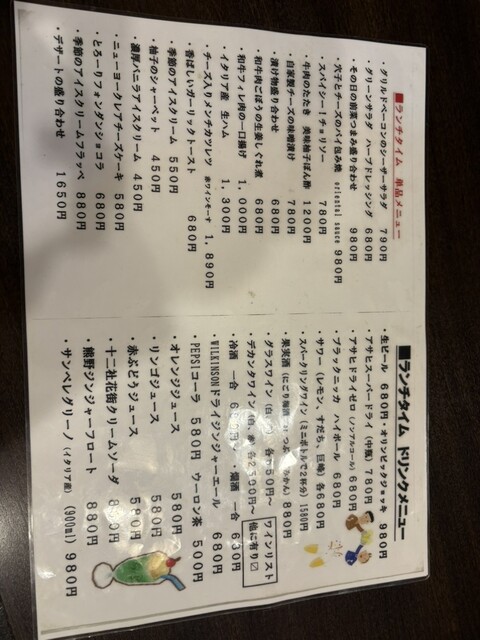 ■ランチタイム 単品メニュー
・グリルドベーコンのシーザーサラダ 790円
・グリーンサラダ ハーブドレッシング 680円
・その日の前菜つまみ盛り合わせ 980円
・穴子とチーズのパイ包み焼 oriental sauce 980円
・スパイシー！チョリソー 780円
・牛肉のたたき 美味柚子ぽん酢 1200円
・自家製チーズの味噌漬け 780円
・漬け物盛り合わせ 680円
・和牛肉ごぼうの生姜しぐれ煮 680円
・和牛フィレ肉の一口揚げ 1,000円
・イタリア産 生ハム 1,300円
・チーズ入りメンチカツレツ 赤ワインソース 1,890円
・香ばしいガーリックトースト 680円
・季節のアイスクリーム 550円
・柚子のシャーベット 450円
・濃厚バニラアイスクリーム 450円
・ニューヨークレアチーズケーキ 580円
・とろーりフォンダンショコラ 680円
・季節のアイスクリームフラッペ 880円
・デザートの盛り合わせ 1650円
■ランチタイム ドリンクメニュー
・生ビール 680円・キリンビックジョッキ 980円
・アサヒスーパードライ(中瓶) 780円
・アサヒドライゼロ(ノンアルコール) 680円
・ブラックニッカ ハイボール 680円
・サワー(レモン、すだち、巨峰) 各680円
・スパークリングワイン(ミニボトルで2杯分) 1580円
・果実酒(にごり梅酒 つぶ みかん) 880円
・グラスワイン(白 50円〜
・デカンタワイン(白、赤) 各2300円〜
ワインリスト
他に有り☑
・冷酒 一合 680円 ・燗酒 一合 630円
・WILKINSONドライジンジャーエール 680円
・PEPSIコーラ 580円 ウーロン茶 500円
・オレンジジュース 580円
・リンゴジュース 580円
・赤ぶどうジュース 580円
・十二社花街クリームソーダ 880円
・熊野ジンジャーフロート 880円
・サンペレグリーノ(イタリア産) (900ml) 980円